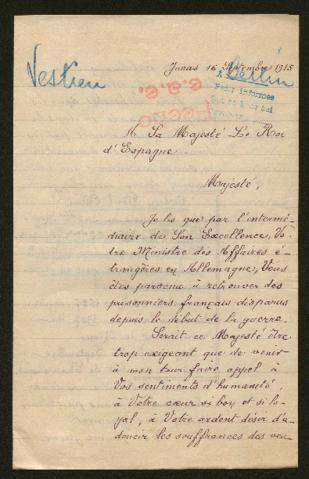 Vestien
Junas 16 Septembre 1915
Berlin
Pedir informes
A Sa Majesté Le Roi
d'Espagne
Majesté,
Je lis que par l'intermé-
diaire de Son Excellence, Vo-
tre Ministre des Affaires é-
trangères en Allemagne, Vous
êtes parvenu à retrouver des
prisonniers français disparus
depuis le début de la guerre.
Serait ce Majesté être
trop exigeant que de venir
à mon tour faire appel à
Vos sentiments d'humanité,
à Votre cœur si bon et si lo-
yal, à Votre ardent désir d'a-
doucir les souffrances des veu-